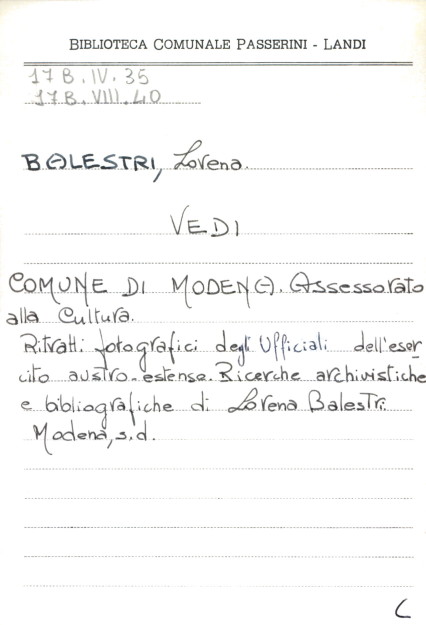 BIBLIOTECA COMUNALE PASSERINI - LANDI
17 B. IV. 35
17 B. VIII. 40
BALESTRI, Lorena.
VEDI
COMUNE DI MODENA. Assessorato
alla Cultura.
Ritratti fotografici degli Ufficiali dell'eser
cito austro-estense. Ricerche archivistiche
e bibliografiche di Lorena Balestri.
Modena, s.d.
C